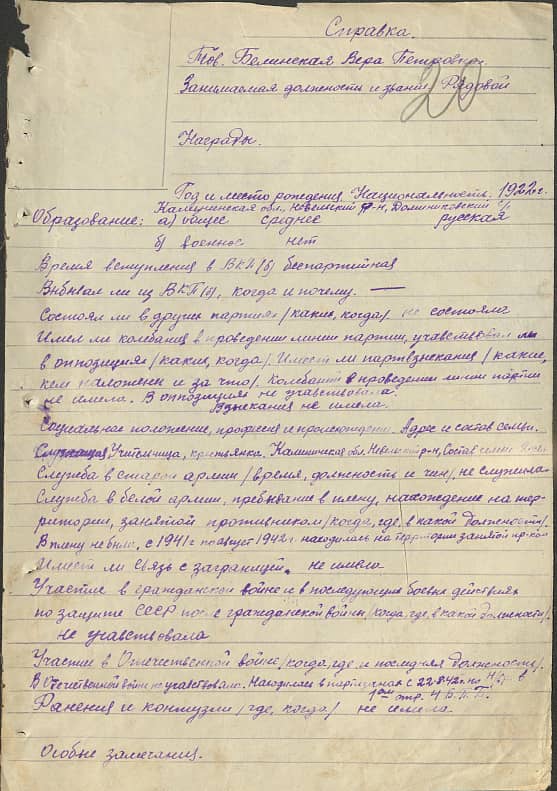 Справка.
Тов. Белинская Вера Петровна
Занимаемая должность и звание Рядовой
20
Награды.
Год и место рождения. Национальность. 1922 г.
Калининская обл. Невельский р-н, Доминиковский с/с
Образование: а) общее среднее русская
б) военное нет
Время вступления в ВКП(б) беспартийная
Выбывал ли из ВКП(б), когда и почему. —
Состоял ли в других партиях /каких, когда/ не состояла
Имел ли колебания в проведении линии партии, учавствовал ли
в оппозициях /каких, когда/. Имеет ли партвзыскания /какие,
кем наложены и за что/. Колебаний в проведении линии партии
не имела. В оппозициях не учавствовала.
Взыскания не имела.
Социальное положение, профессия и происхождение. Адрес и состав семьи.
Служащая, Учительница, крестьянка. Калининская обл. Невельский р-н, Состав семьи
Служба в старой армии /время, должность и чин/, не служила
Служба в белой армии, пребывание в плену, нахождение на тер-
ритории, занятой противником /когда, где, в какой должности/
В плену не была, с 1941 г по август 1942 г. находилась на территории занятой пр-ком
Имеет ли связь с заграницей. не имела
Участие в гражданской войне и в последующих боевых действиях
по защите СССР после гражданской войны, /когда, где, в какой должности/
не учавствовала
Участие в Отечественной войне /когда, где и последняя должность/.
В Отечественной войне не учавствовала. Находилась в партизанах с 22.8.42 г. по н/вр. в
1ом отр. 4 Б.П.П.
Ранения и контузии /где, когда/ не имела.
Особые замечания.